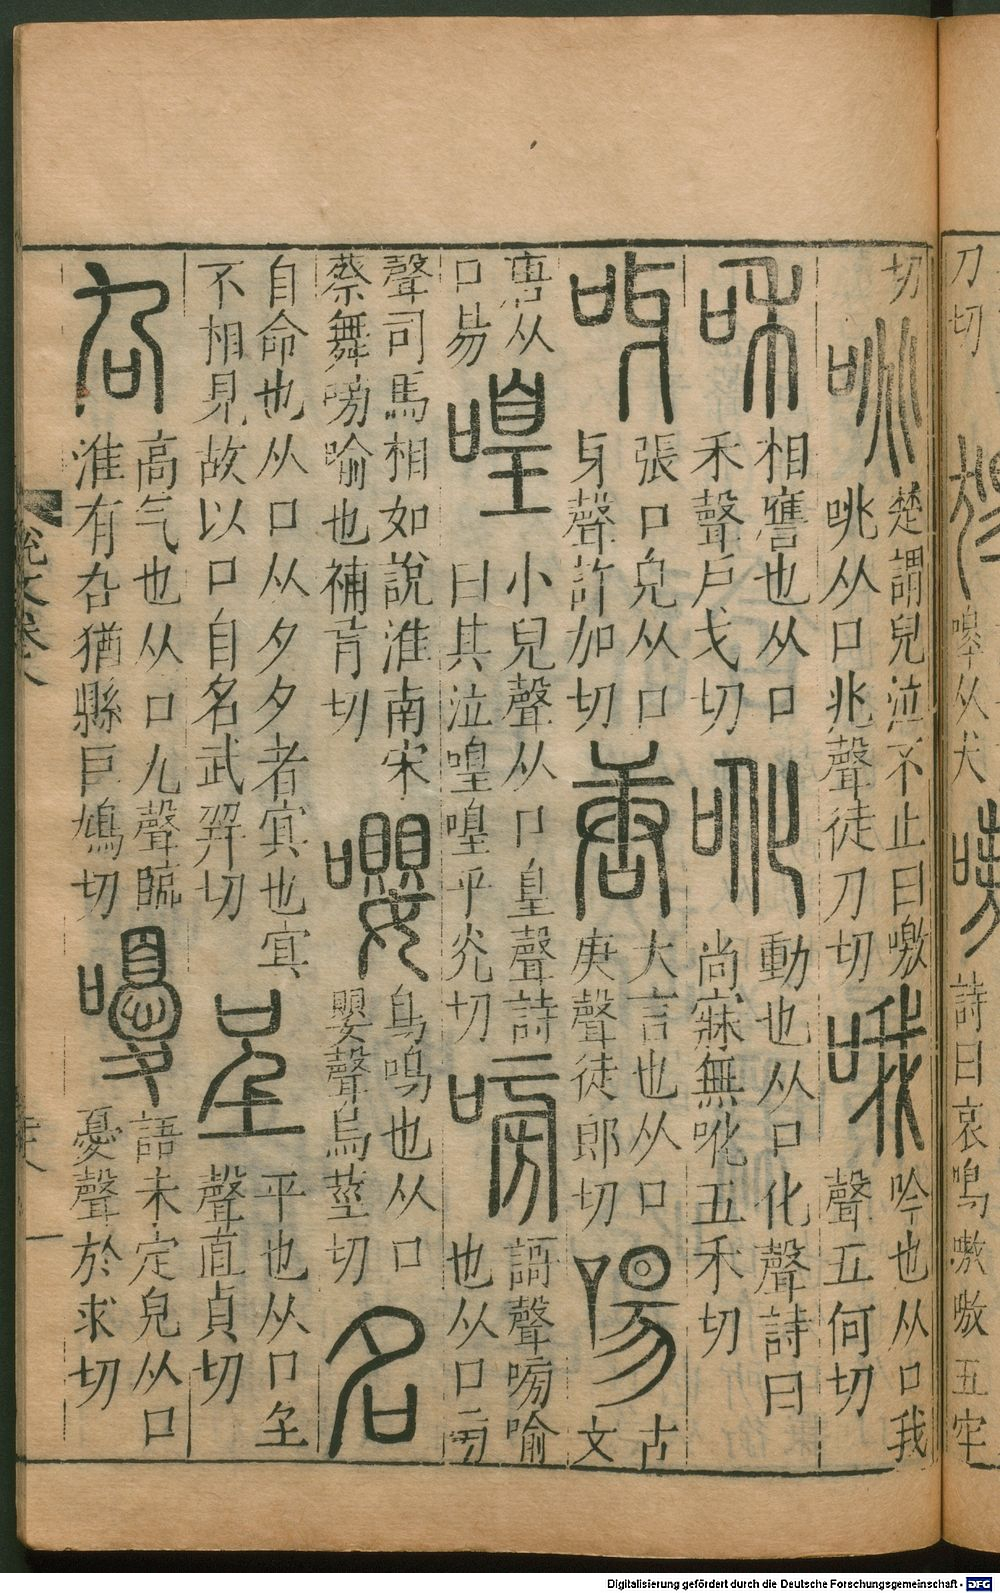 刀切
嗥从犬
詩曰哀鳴嗷嗷五牢
切
咷
楚謂兒泣不止曰噭
咷从口兆聲徒刀切
哦
吟也从口我
聲五何切
咊
相譍也从口
禾聲戶戈切
吪
動也从口化聲詩曰
尚寐無吪五禾切
呀
張口皃从口
牙聲許加切
唐
大言也从口
庚聲徒郎切
啺
古
文
唐从
口昜
喤
小兒聲从口皇聲詩
曰其泣喤喤乎光切
嗙
謌聲嗙喻
也从口㫄
聲司馬相如說淮南宋
蔡舞嗙喻也補肓切
嚶
鳥鳴也从口
嬰聲烏莖切
名
自命也从口从夕夕者㝠也㝠
不相見故以口自名武羿切
呈
平也从口𡈼
聲直貞切
㕤
高气也从口九聲臨
淮有㕤猶縣巨鳩切
嚘
語未定皃从口
憂聲於求切
說文卷
Digitalisierung gefördert durch die Deutsche Forschungsgemeinschaft - DFG